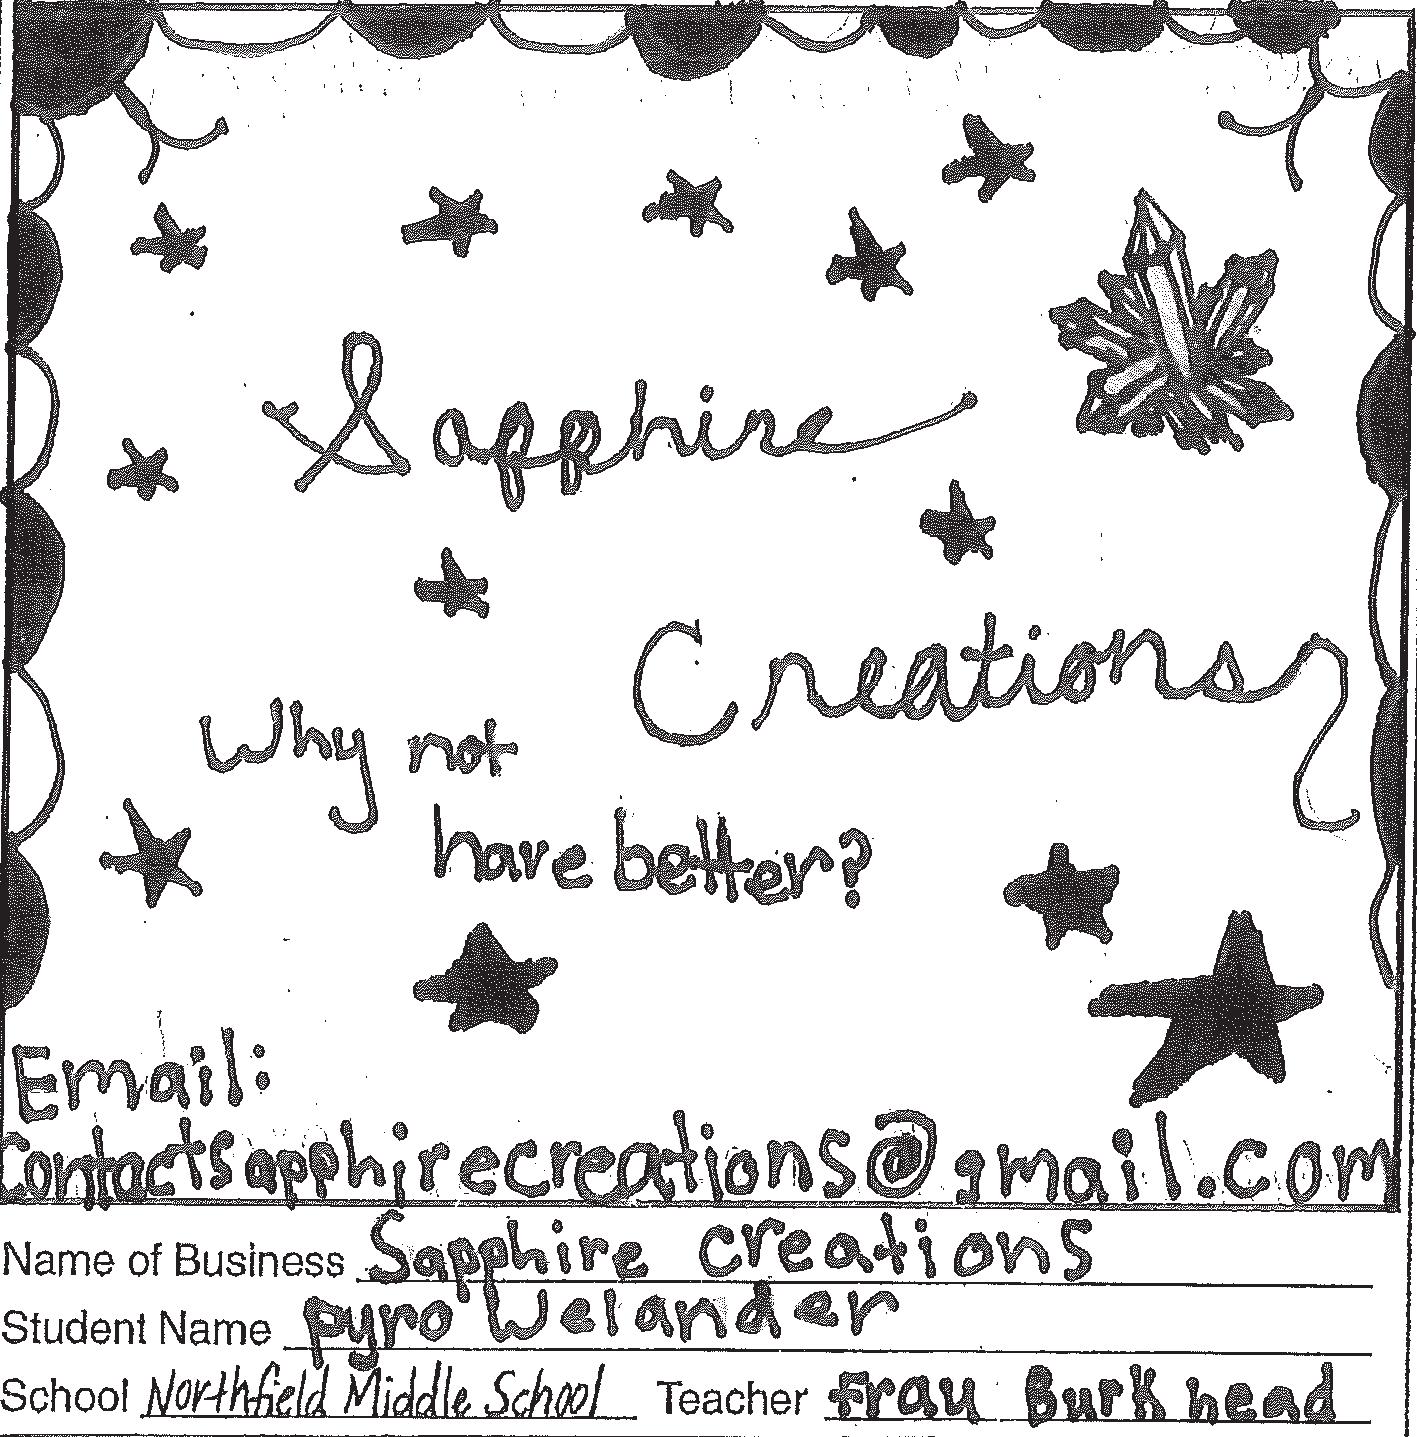 Sapphire
Creations
Why not
have better?
Email:
Contactsapphirecreations@gmail.com
Name of Business Sapphire creations
Student Name pyro Welander
School Northfield Middle School Teacher Frau Burkhead